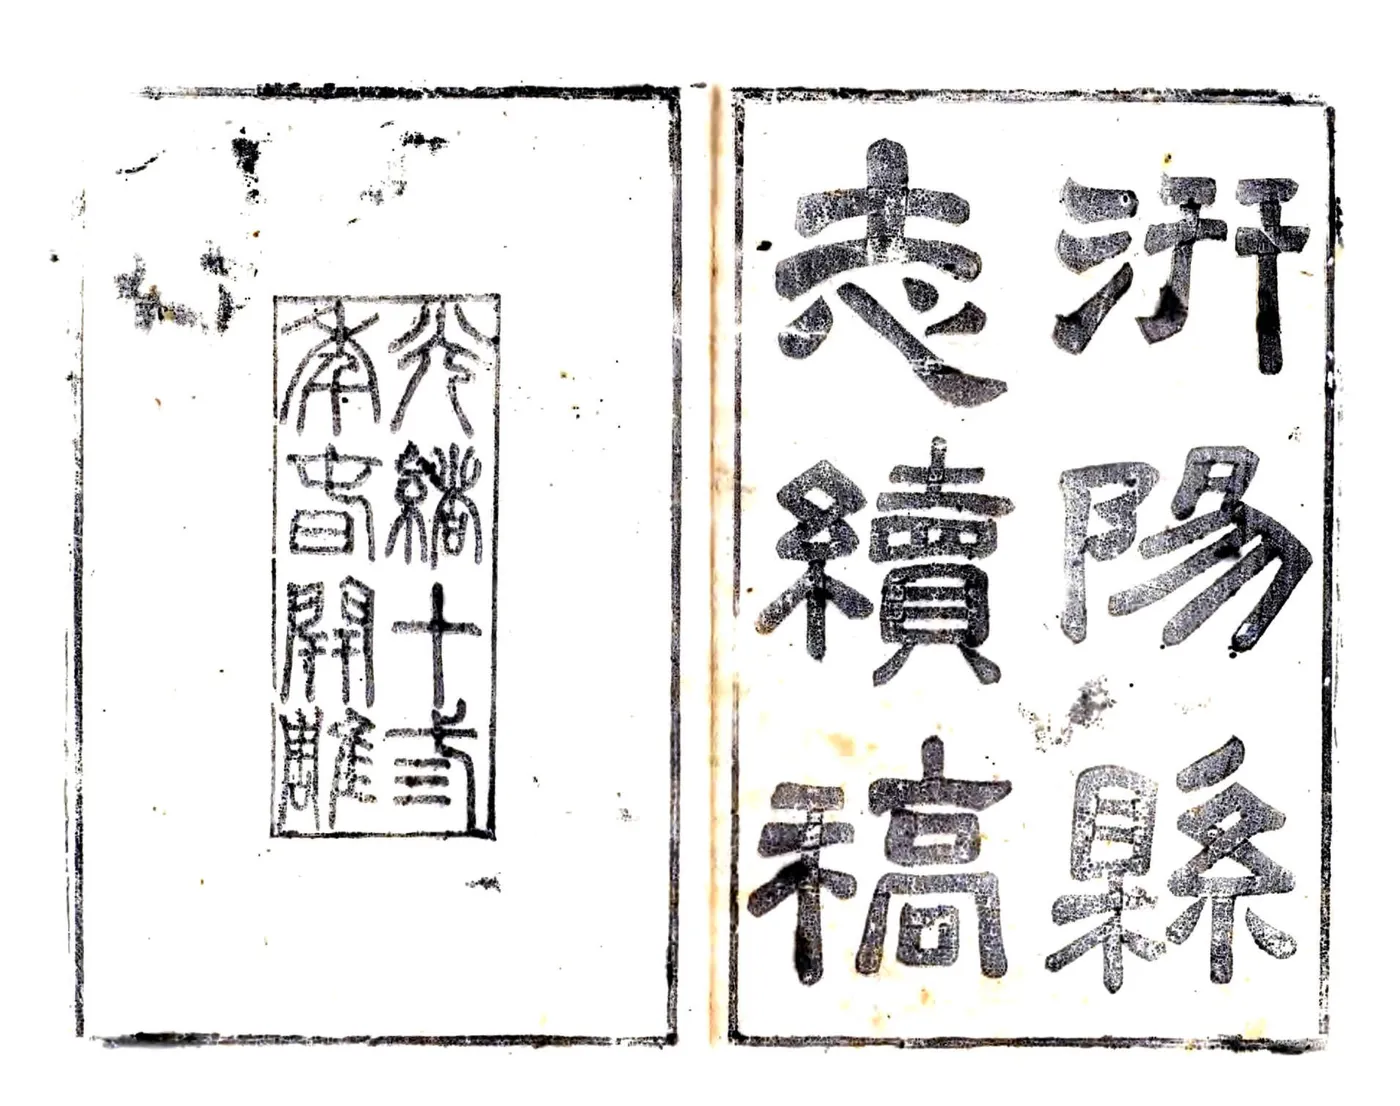 汧陽縣
志續稿
光緒十弎
年旾開雕